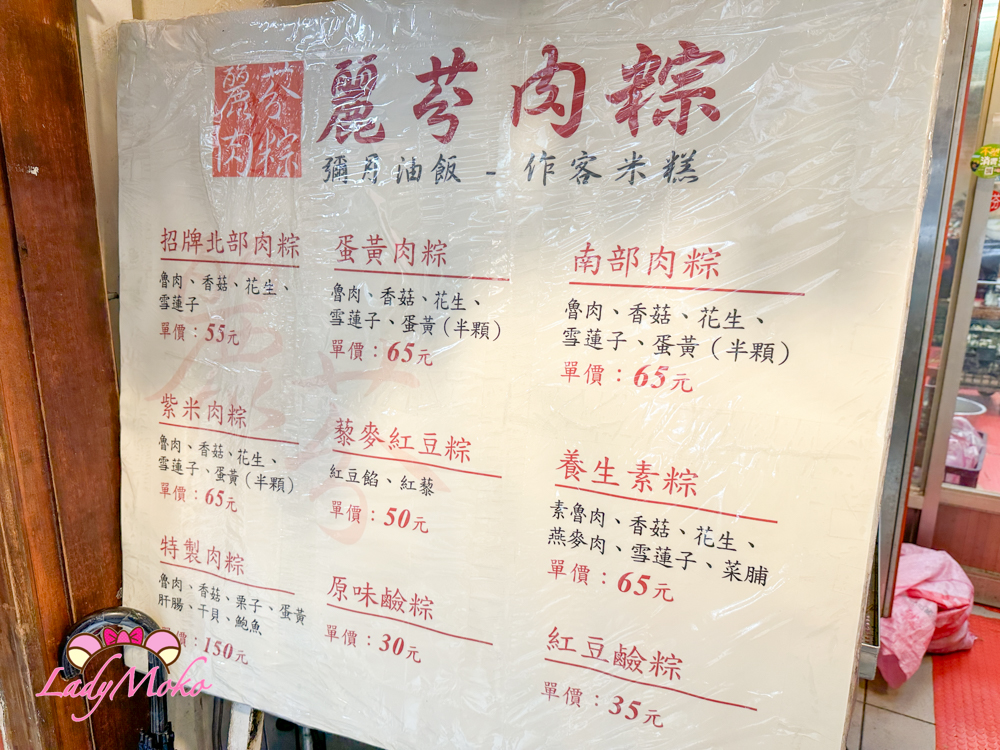 麗芬肉粽
麗芬肉粽
彌月油飯 - 作客米糕
招牌北部肉粽
魯肉、香菇、花生、
雪蓮子
單價：55元
蛋黃肉粽
魯肉、香菇、花生、
雪蓮子、蛋黃（半顆）
單價：65元
南部肉粽
魯肉、香菇、花生、
雪蓮子、蛋黃（半顆）
單價：65元
紫米肉粽
魯肉、香菇、花生、
雪蓮子、蛋黃（半顆）
單價：65元
藜麥紅豆粽
紅豆餡、紅藜
單價：50元
養生素粽
素魯肉、香菇、花生、
燕麥肉、雪蓮子、菜脯
單價：65元
特製肉粽
魯肉、香菇、栗子、蛋黃
肝腸、干貝、鮑魚
價：150元
原味鹼粽
單價：30元
紅豆鹼粽
單價：35元
LadyMoko